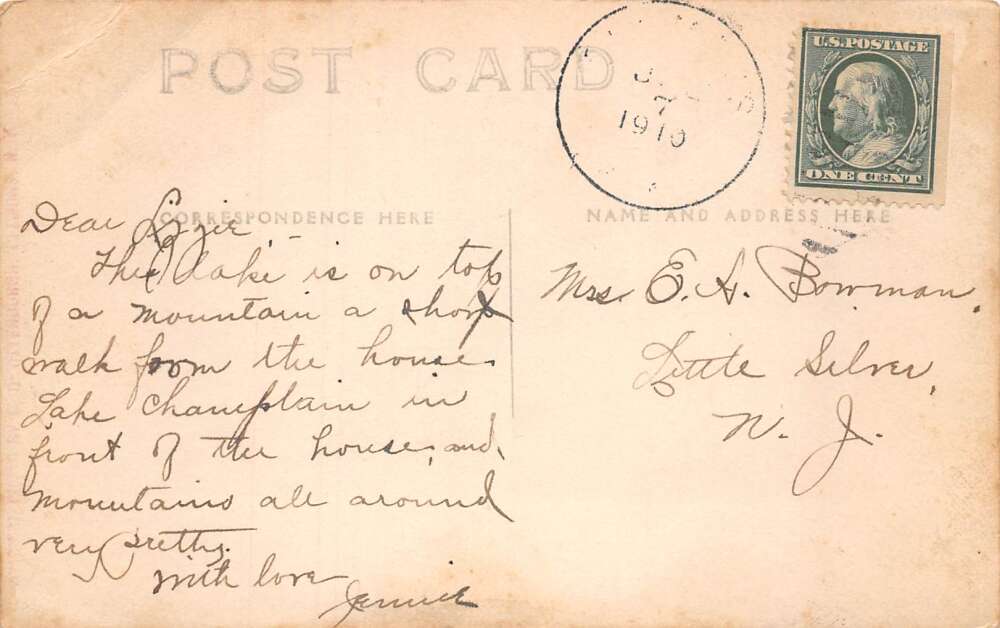 POST CARD
7
1910
U.S. POSTAGE
ONE CENT
CORRESPONDENCE HERE
NAME AND ADDRESS HERE
Dear Lizzie,
This lake is on top
of a mountain a short
walk from the house.
Lake Champlain in
front of the house, and
mountains all around
very pretty.
With love
Jennie
Mrs. E. A. Bowman,
Little Silver,
N. J.